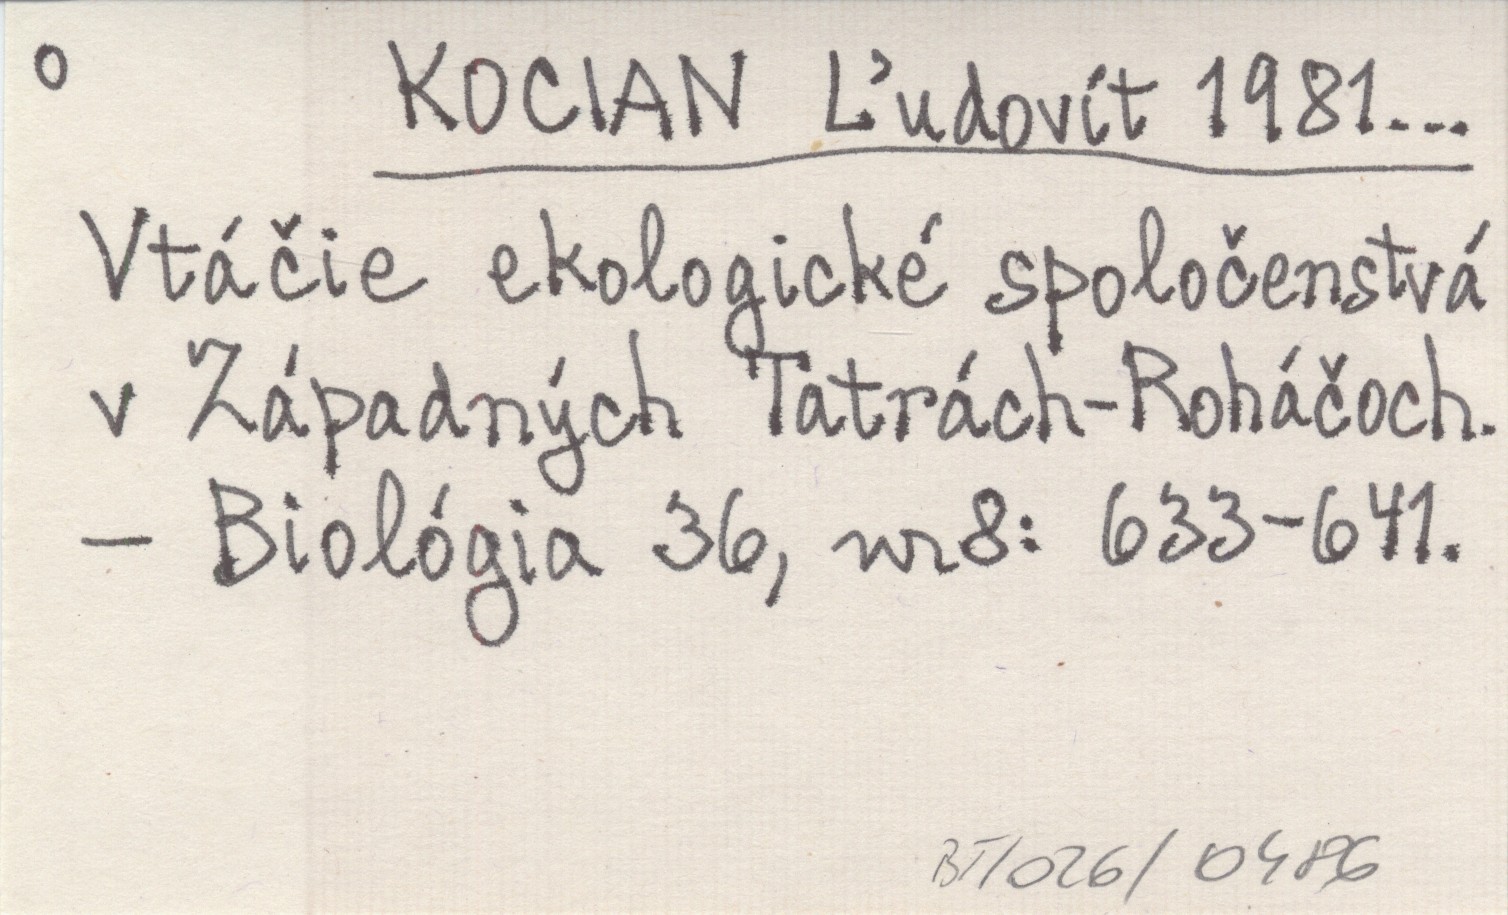 o KOCIAN Ľudovít 1981...
Vtáčie ekologické spoločenstvá
v Západných Tatrách-Roháčoch.
– Biológia 36, nr 8: 633-641.
BT/026/0486